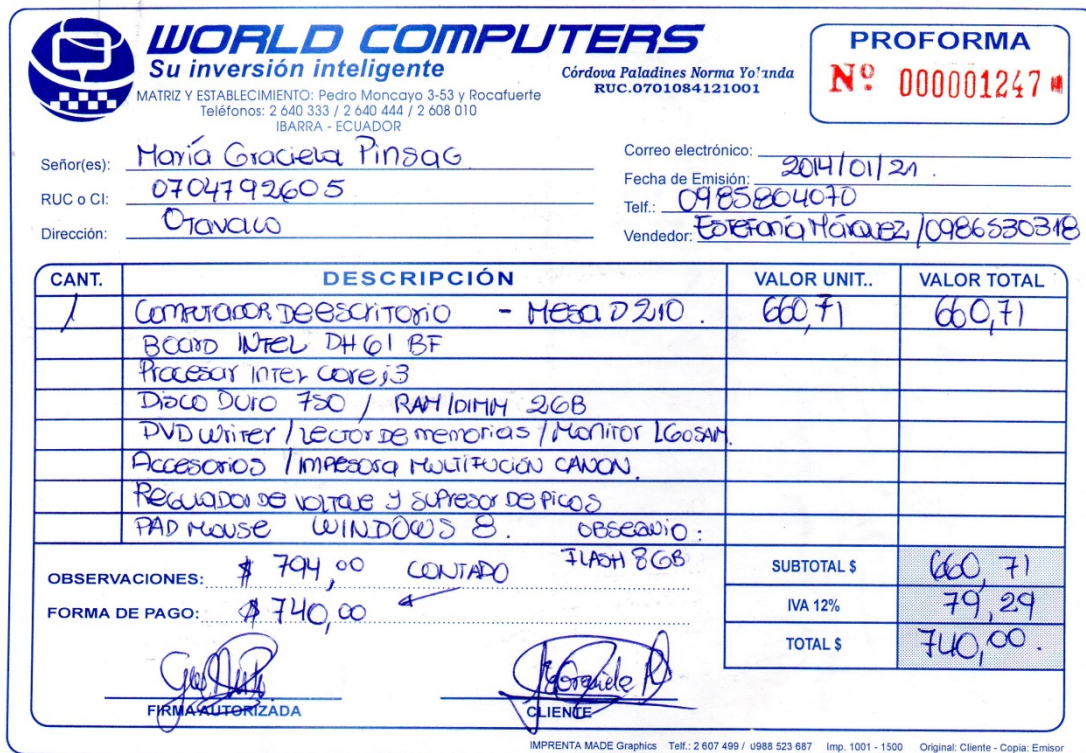 WORLD COMPUTERS
Su inversión inteligente
Córdova Paladines Norma Yolanda
RUC.0701084121001
MATRIZ Y ESTABLECIMIENTO: Pedro Moncayo 3-53 y Rocafuerte
Teléfonos: 2 640 333 / 2 640 444 / 2 608 010
IBARRA - ECUADOR
PROFORMA
Nº 000001247
Señor(es): María Graciela Pinsag
RUC o CI: 0704792605
Dirección: Otavalo
Correo electrónico:
Fecha de Emisión: 2014/01/21.
Telf.: 0985804070
Vendedor: Estefanía Márquez / 0986530318
CANT. DESCRIPCIÓN VALOR UNIT.. VALOR TOTAL
1 Computador de escritorio - Mesa D210. 660,71 660,71
Board INTEL DH61 BF
Procesar Intel Core i3
Disco Duro 750 / RAM/DIMM 2GB
DVD Writer / Lector de memorias / Monitor LG o SAM.
Accesorios / Impresora Multifución CANON.
Regulador de voltaje y supresor de picos
PAD Mouse WINDOWS 8. OBSEQUIO:
FLASH 8GB
OBSERVACIONES: $ 794,00 CONTADO
FORMA DE PAGO: $ 740,00
SUBTOTAL $ 660,71
IVA 12% 79,29
TOTAL $ 740,00.
FIRMA AUTORIZADA
CLIENTE
IMPRENTA MADE Graphics Telf.: 2 607 499 / 0988 523 687 Imp. 1001 - 1500 Original: Cliente - Copia: Emisor